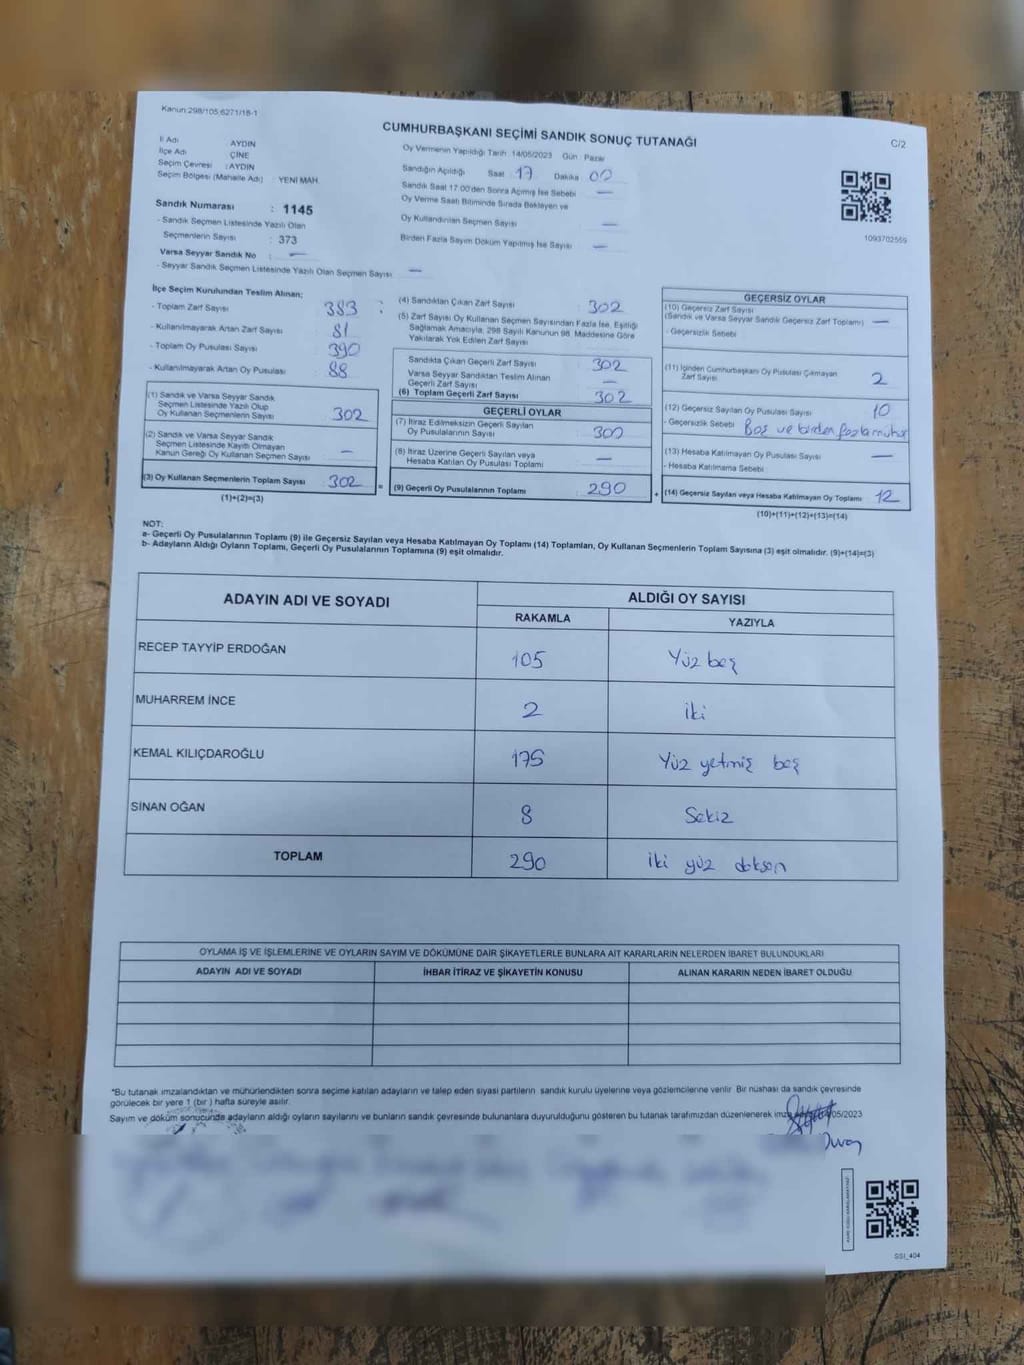 Kanun:298/105;6271/18-1
CUMHURBAŞKANI SEÇİMİ SANDIK SONUÇ TUTANAĞI
C/2
İl Adı : AYDIN
İlçe Adı : ÇİNE
Seçim Çevresi : AYDIN
Seçim Bölgesi (Mahalle Adı) : YENİ MAH.
Sandık Numarası : 1145
- Sandık Seçmen Listesinde Yazılı Olan
Seçmenlerin Sayısı : 373
Varsa Seyyar Sandık No : —
- Seyyar Sandık Seçmen Listesinde Yazılı Olan Seçmen Sayısı —
Oy Vermenin Yapıldığı Tarih : 14/05/2023 Gün : Pazar
Sandığın Açıldığı Saat 17 Dakika 00
Sandık Saat 17:00'den Sonra Açılmış İse Sebebi —
Oy Verme Saati Bitiminde Sırada Bekleyen ve
Oy Kullandırılan Seçmen Sayısı —
Birden Fazla Sayım Döküm Yapılmış İse Sayısı —
1093702559
İlçe Seçim Kurulundan Teslim Alınan;
- Toplam Zarf Sayısı 383
- Kullanılmayarak Artan Zarf Sayısı 81
- Toplam Oy Pusulası Sayısı 390
- Kullanılmayarak Artan Oy Pusulası 88
(1) Sandık ve Varsa Seyyar Sandık
Seçmen Listesinde Yazılı Olup
Oy Kullanan Seçmenlerin Sayısı 302
(2) Sandık ve Varsa Seyyar Sandık
Seçmen Listesinde Kayıtlı Olmayan
Kanun Gereği Oy Kullanan Seçmen Sayısı —
(3) Oy Kullanan Seçmenlerin Toplam Sayısı 302
(1)+(2)=(3)
(4) Sandıktan Çıkan Zarf Sayısı : 302
(5) Zarf Sayısı Oy Kullanan Seçmen Sayısından Fazla İse, Eşitliği
Sağlamak Amacıyla, 298 Sayılı Kanunun 98. Maddesine Göre
Yakılarak Yok Edilen Zarf Sayısı
Sandıkta Çıkan Geçerli Zarf Sayısı : 302
Varsa Seyyar Sandıktan Teslim Alınan
Geçerli Zarf Sayısı —
(6) Toplam Geçerli Zarf Sayısı : 302
GEÇERLİ OYLAR
(7) İtiraz Edilmeksizin Geçerli Sayılan
Oy Pusulalarının Sayısı : 300
(8) İtiraz Üzerine Geçerli Sayılan veya
Hesaba Katılan Oy Pusulası Toplamı —
= (9) Geçerli Oy Pusulalarının Toplamı : 290
GEÇERSİZ OYLAR
(10) Geçersiz Zarf Sayısı
(Sandık ve Varsa Seyyar Sandık Geçersiz Zarf Toplamı) —
- Geçersizlik Sebebi
(11) İçinden Cumhurbaşkanı Oy Pusulası Çıkmayan
Zarf Sayısı 2
(12) Geçersiz Sayılan Oy Pusulası Sayısı 10
- Geçersizlik Sebebi Boş ve birden fazla mühür
(13) Hesaba Katılmayan Oy Pusulası Sayısı —
- Hesaba Katılmama Sebebi
+ (14) Geçersiz Sayılan veya Hesaba Katılmayan Oy Toplamı 12
(10)+(11)+(12)+(13)=(14)
NOT:
a- Geçerli Oy Pusulalarının Toplamı (9) ile Geçersiz Sayılan veya Hesaba Katılmayan Oy Toplamı (14) Toplamları, Oy Kullanan Seçmenlerin Toplam Sayısına (3) eşit olmalıdır. (9)+(14)=(3)
b- Adayların Aldığı Oyların Toplamı, Geçerli Oy Pusulalarının Toplamına (9) eşit olmalıdır.
ADAYIN ADI VE SOYADI ALDIĞI OY SAYISI
RAKAMLA YAZIYLA
RECEP TAYYİP ERDOĞAN 105 Yüz beş
MUHARREM İNCE 2 iki
KEMAL KILIÇDAROĞLU 175 Yüz yetmiş beş
SİNAN OĞAN 8 Sekiz
TOPLAM 290 iki yüz doksan
OYLAMA İŞ VE İŞLEMLERİNE VE OYLARIN SAYIM VE DÖKÜMÜNE DAİR ŞİKAYETLERLE BUNLARA AİT KARARLARIN NELERDEN İBARET BULUNDUKLARI
ADAYIN ADI VE SOYADI İHBAR İTİRAZ VE ŞİKAYETİN KONUSU ALINAN KARARIN NEDEN İBARET OLDUĞU
*Bu tutanak imzalandıktan ve mühürlendikten sonra seçime katılan adayların ve talep eden siyasi partilerin sandık kurulu üyelerine veya gözlemcilerine verilir. Bir nüshası da sandık çevresinde
görülecek bir yere 1 (bir) hafta süreyle asılır.
Sayım ve döküm sonucunda adayların aldığı oyların sayılarını ve bunların sandık çevresinde bulunanlara duyurulduğunu gösteren bu tutanak tarafımızdan düzenlenerek /05/2023
SSI_404